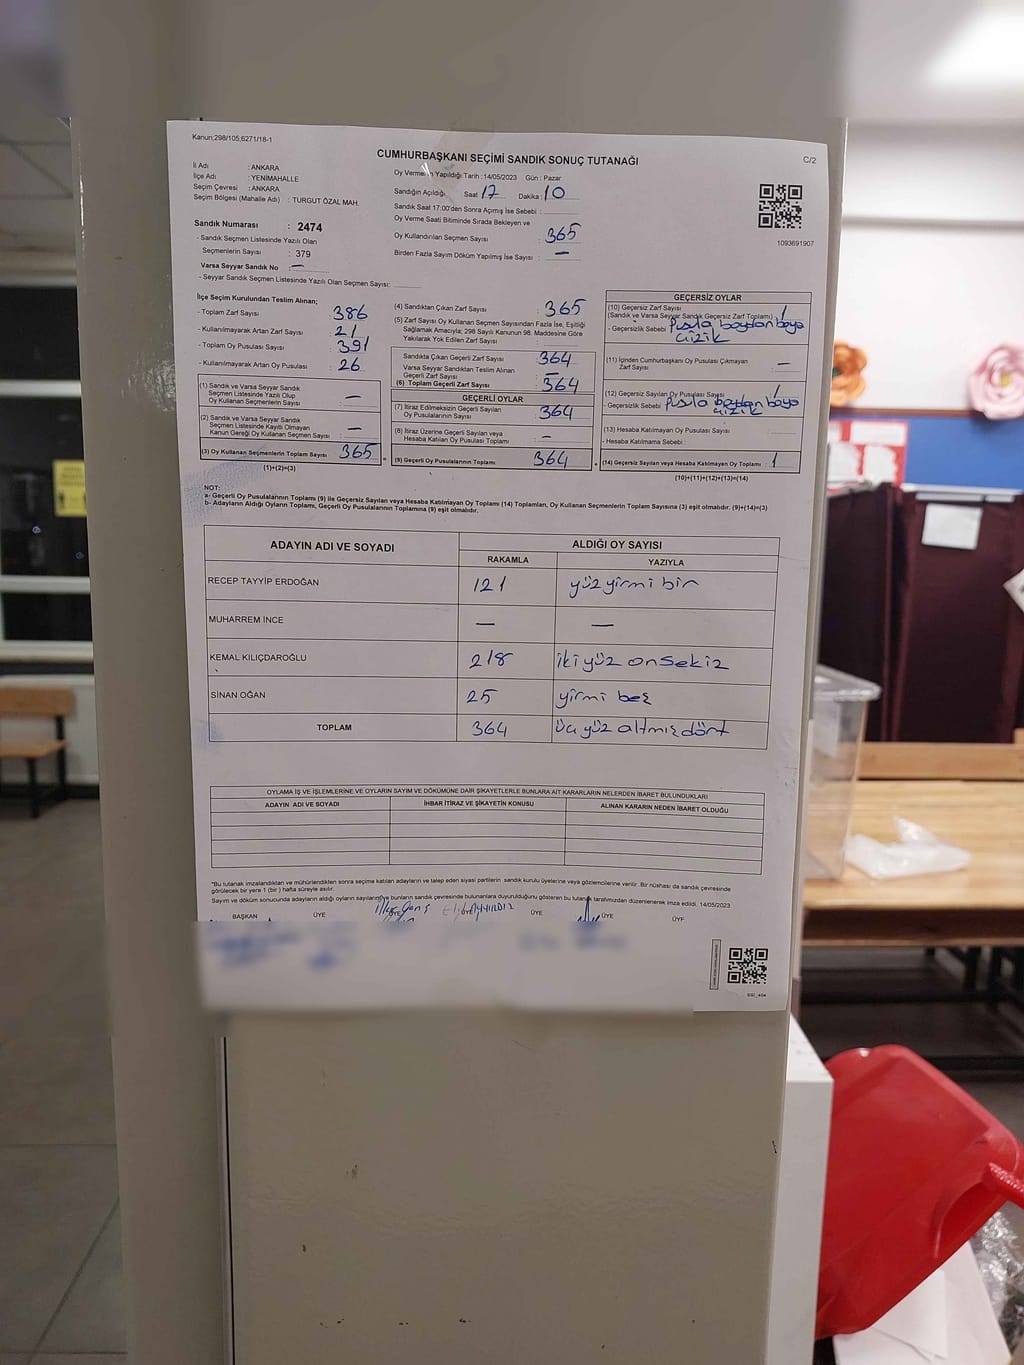 Kanun;298/105;6271/18-1
CUMHURBAŞKANI SEÇİMİ SANDIK SONUÇ TUTANAĞI
C/2
İl Adı : ANKARA
İlçe Adı : YENİMAHALLE
Seçim Çevresi : ANKARA
Seçim Bölgesi (Mahalle Adı) : TURGUT ÖZAL MAH.
Oy Vermenin Yapıldığı Tarih :14/05/2023 Gün : Pazar
Sandığın Açıldığı Saat 17 Dakika : 10
Sandık Saat 17:00'den Sonra Açımış İse Sebebi :
Oy Verme Saati Bitiminde Sırada Bekleyen ve
Oy Kullandırılan Seçmen Sayısı : 365
Birden Fazla Sayım Döküm Yapılmış İse Sayısı : —
1093691907
Sandık Numarası : 2474
- Sandık Seçmen Listesinde Yazılı Olan
Seçmenlerin Sayısı : 379
Varsa Seyyar Sandık No : —
- Seyyar Sandık Seçmen Listesinde Yazılı Olan Seçmen Sayısı:
İlçe Seçim Kurulundan Teslim Alınan;
- Toplam Zarf Sayısı : 386
- Kullanılmayarak Artan Zarf Sayısı : 21
- Toplam Oy Pusulası Sayısı : 391
- Kullanılmayarak Artan Oy Pusulası : 26
(1) Sandık ve Varsa Seyyar Sandık
Seçmen Listesinde Yazılı Olup
Oy Kullanan Seçmenlerin Sayısı : —
(2) Sandık ve Varsa Seyyar Sandık
Seçmen Listesinde Kayıtlı Olmayan
Kanun Gereği Oy Kullanan Seçmen Sayısı : —
(3) Oy Kullanan Seçmenlerin Toplam Sayısı : 365
(1)+(2)=(3)
(4) Sandıktan Çıkan Zarf Sayısı : 365
(5) Zarf Sayısı Oy Kullanan Seçmen Sayısından Fazla İse, Eşitliği
Sağlamak Amacıyla; 298 Sayılı Kanunun 98. Maddesine Göre
Yakılarak Yok Edilen Zarf Sayısı :
Sandıkta Çıkan Geçerli Zarf Sayısı : 364
Varsa Seyyar Sandıktan Teslim Alınan
Geçerli Zarf Sayısı : —
(6) Toplam Geçerli Zarf Sayısı : 364
GEÇERLİ OYLAR
(7) İtiraz Edilmeksizin Geçerli Sayılan
Oy Pusulalarının Sayısı : 364
(8) İtiraz Üzerine Geçerli Sayılan ve
Hesaba Katılan Oy Pusulası Toplamı : —
(9) Geçerli Oy Pusulalarının Toplamı : 364
GEÇERSİZ OYLAR
(10) Geçersiz Zarf Sayısı
(Sandık ve Varsa Seyyar Sandık Geçersiz Zarf Toplamı) : 1
- Geçersizlik Sebebi : Pusula boydan boya
çizik
(11) İçinden Cumhurbaşkanı Oy Pusulası Çıkmayan
Zarf Sayısı : —
(12) Geçersiz Sayılan Oy Pusulası Sayısı : 1
- Geçersizlik Sebebi : Pusula boydan boya
çizik
(13) Hesaba Katılmayan Oy Pusulası Sayısı :
- Hesaba Katılmama Sebebi :
(14) Geçersiz Sayılan veya Hesaba Katılmayan Oy Toplamı : 1
(10)+(11)+(12)+(13)=(14)
NOT:
a- Geçerli Oy Pusulalarının Toplamı (9) ile Geçersiz Sayılan veya Hesaba Katılmayan Oy Toplamı (14) Toplamları, Oy Kullanan Seçmenlerin Toplam Sayısına (3) eşit olmalıdır. (9)+(14)=(3)
b- Adayların Aldığı Oyların Toplamı, Geçerli Oy Pusulalarının Toplamına (9) eşit olmalıdır.
ADAYIN ADI VE SOYADI ALDIĞI OY SAYISI
RAKAMLA YAZIYLA
RECEP TAYYİP ERDOĞAN 121 yüz yirmi bir
MUHARREM İNCE — —
KEMAL KILIÇDAROĞLU 218 iki yüz onsekiz
SİNAN OĞAN 25 yirmi beş
TOPLAM 364 üç yüz altmış dört
OYLAMA İŞ VE İŞLEMLERİNE VE OYLARIN SAYIM VE DÖKÜMÜNE DAİR ŞİKAYETLERLE BUNLARA AİT KARARLARIN NELERDEN İBARET BULUNDUKLARI
ADAYIN ADI VE SOYADI İHBAR İTİRAZ VE ŞİKAYETİN KONUSU ALINAN KARARIN NEDEN İBARET OLDUĞU
*Bu tutanak imzalandıktan ve mühürlendikten sonra seçime katılan adayların ve talep eden siyasi partilerin sandık kurulu üyelerine veya gözlemcilerine verilir. Bir nüshası da sandık çevresinde
görülecek bir yere 1 (bir ) hafta süreyle asılır.
Sayım ve döküm sonucunda adayların aldığı oyların sayılarını ve bunların sandık çevresinde bulunanlara duyurulduğunu gösteren bu tutanak tarafımızdan düzenlenerek imza edildi. 14/05/2023
BAŞKAN ÜYE ÜYE ÜYE ÜYE ÜYE ÜYE